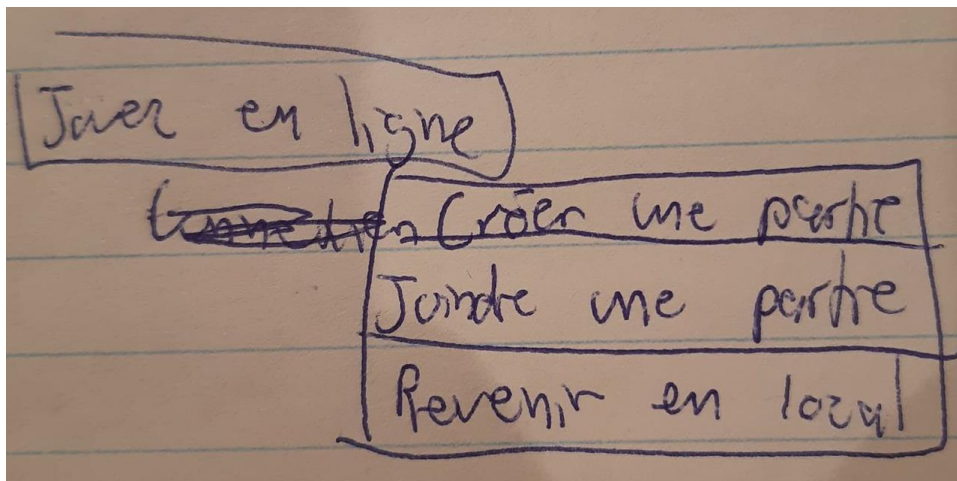 Jouer en ligne
Créer une partie
Joindre une partie
Revenir en local